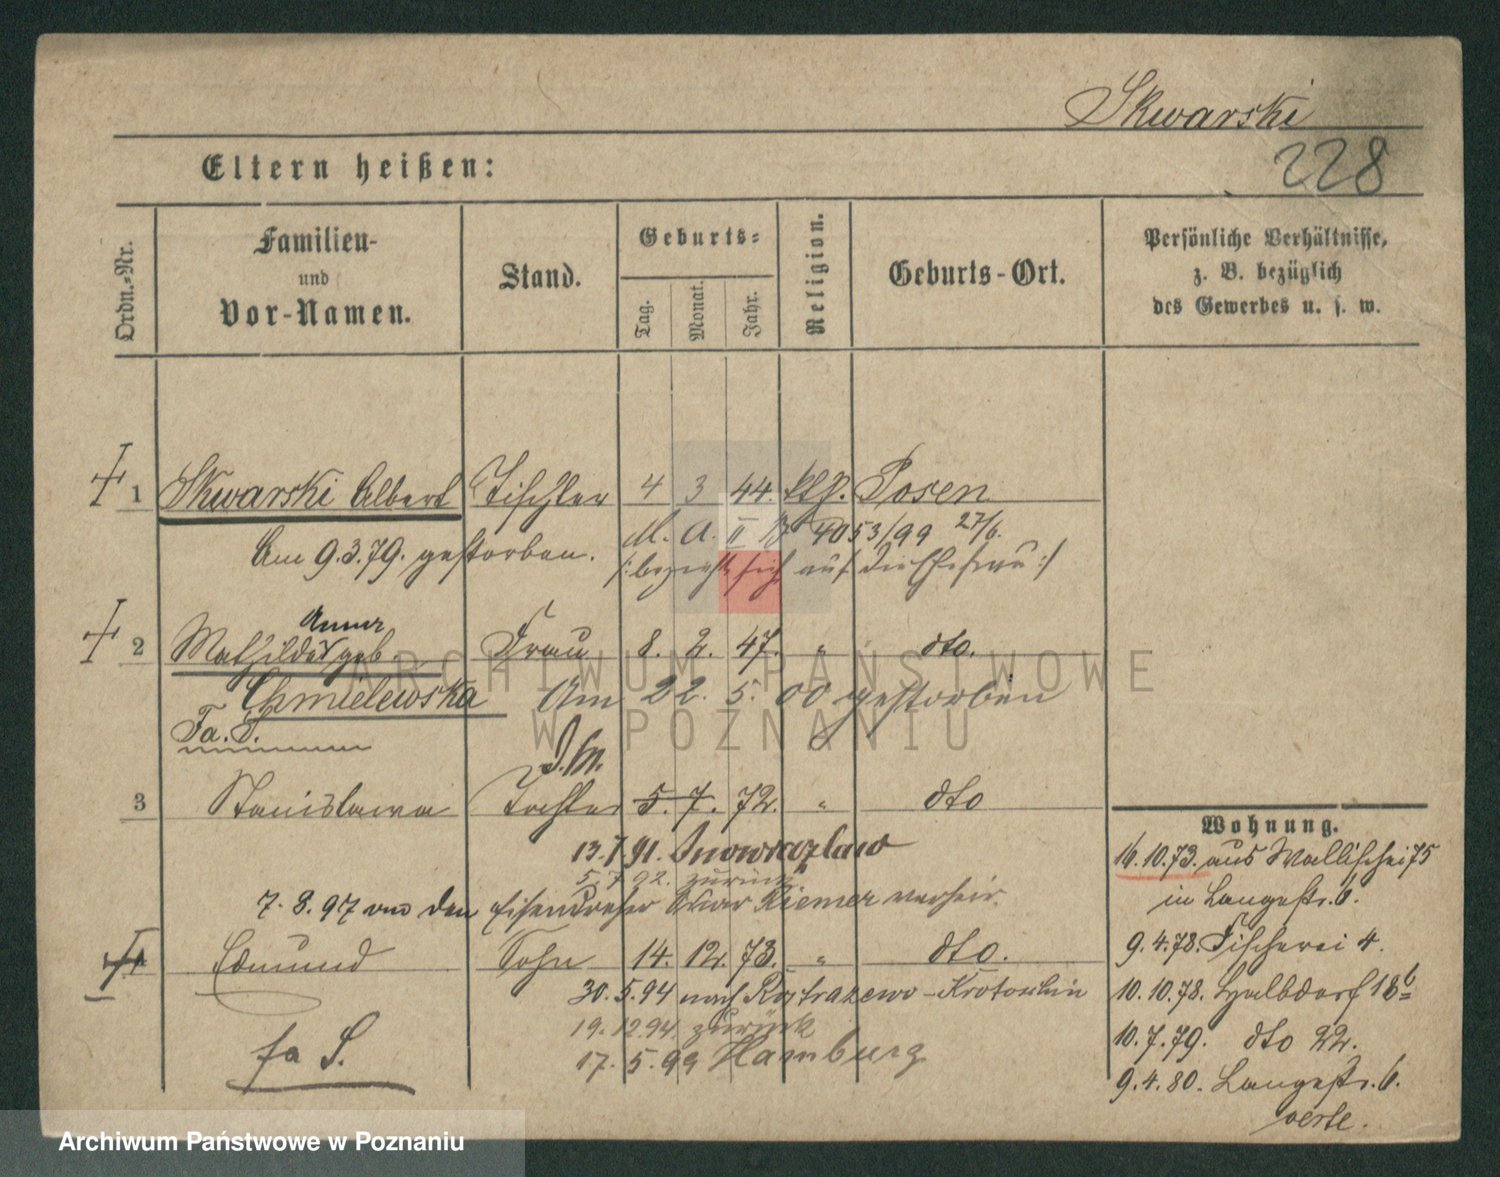 Skwarski
228
Eltern heißen:
Ordn.-Nr.
Familien- und Vor-Namen.
Stand.
Geburts-
Tag.
Monat.
Jahr.
Religion.
Geburts-Ort.
Persönliche Verhältnisse, z. B. bezüglich des Gewerbes u. s. w.
1 Skwarski Albert Tischler 4 3 44. ktg. Posen
M. A. II 4053/99 27/6.
Am 9.3.79. gestorben. /: bezieht sich auf die Ehefrau :/
Anna
2 Mathilde geb Frau 8. 2. 47. " dto.
Chmielewska Am 22. 5. 00 gestorben
Fa. S.
3 Stanislawa Tochter 5. 7. 72. " dto
13.7.91. Inowrazlaw
5.7.92. zurück
7. 8. 97 den Eisendreher Oskar Riemer verheir.
4 Edmund Sohn 14. 12. 73. " dto.
30. 5. 94 nach Krotoschin
19. 12 94 zurück
fa S.
17. 5. 99 Hamburg
Wohnung.
16. 10. 73. aus Wallischei 75
in Langestr. 6.
9. 4. 78. Fischerei 4.
10. 10. 78. Halbdorf 18b
10. 7. 79. dto 22.
9. 4. 80. Langestr. 6.
verte.
ARCHIWUM PAŃSTWOWE
W POZNANIU
Archiwum Państwowe w Poznaniu